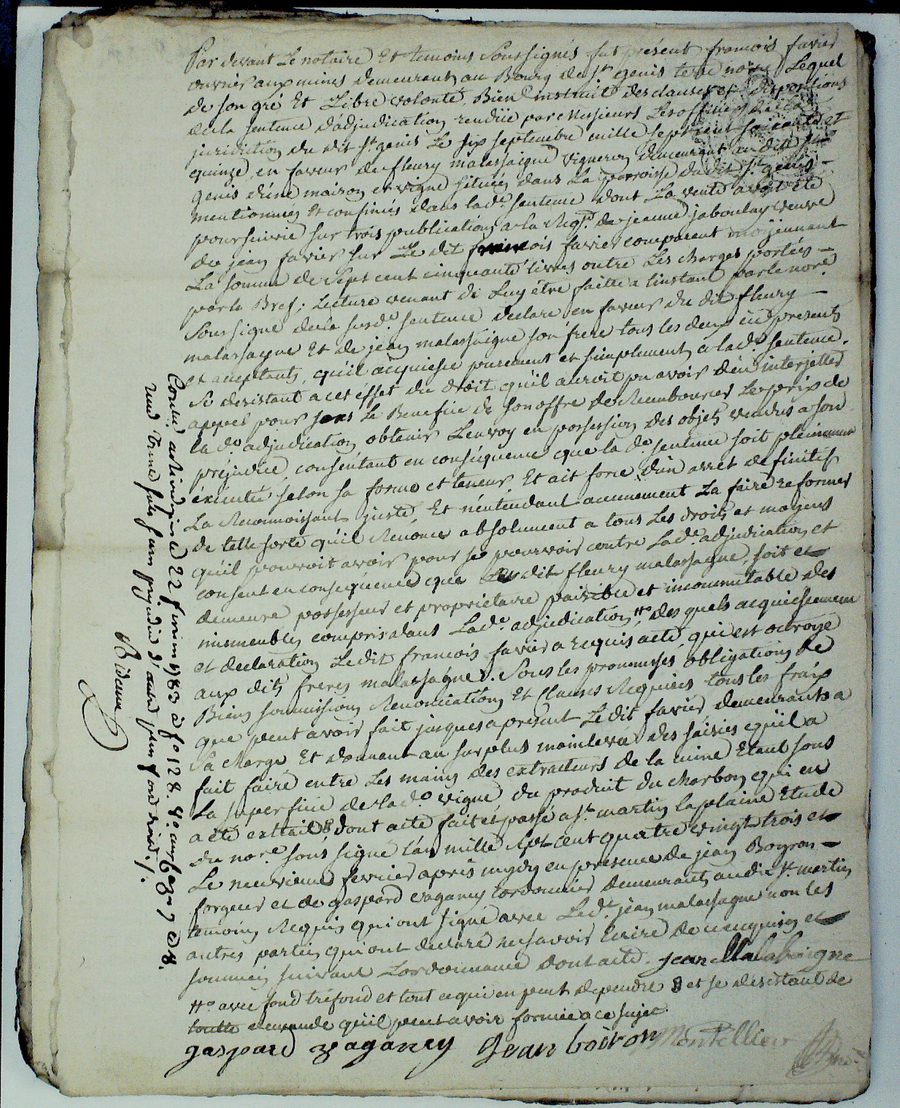 Par devant Le notaire Et temoins Soussignés fut présent françois favier
ouvrier aux mines demeurant au Bourg de st genis terre noire Lequel
de son gré Et Libre volonté Bien instruit des clauses et dispositions
de la sentence d'adjudication rendüe par Messieurs Les officiers de la
juridiction du dit st genis Le six septembre mille sept cent soixante et
quinze en faveur de fleury malassaigne vigneron demeurant au dit st
genis d'une maison et vigne situées dans La parroisse du dit st genis
mentionnées et confinées dans lade sentence dont La vente avoit été
poursuivie sur trois publications a la Reqte de jeanne jaboulay veuve
de jean favier sur Le dit françois favier comparant moyennant
La somme de sept cent cinquante livres outre Les charges portées
par le Bref, Lecture venant de Luy être faite a l'instant par le nore
Soussigné de la susde sentence declare en faveur du dit fleury
malassaigne Et de jean malassaigne son frere tous les deux icy presents
et acceptants, qu'il acquiesce purement et simplement a lade sentence.
Se desistant a cet effet du droit qu'il auroit pu avoir d'en interjetter
appel pour sous Le Benefice de son offre de Rembourser Le prix de
la de adjudication obtenir L'envoy en possession des objets vendus a son
préjudice, consentant en consequence que la de sentence soit pleinement
éxécutée selon sa forme et teneur Et ait force d'un arret definitif
La Reconnoissant juste, Et n'entendant aucunement La faire reformer
de telle sorte qu'il Renonce absolument a tous Les droits et moyens
qu'il pourroit avoir pour se pourvoir contre Lade adjudication et
consent en consequence que Le dit fleury malassagne soit et
demeure possesseur et propriétaire paisible et incommutable des
immeubles compris dans Lade adjudication, # des quels acquiescement
et declaration Ledit francois favier a requis acte qui est octroyé
aux dits freres malassagne. Sous les promesses obligations de
Biens soumissions Renonciations Et clauses Requises tous les fraix
que peut avoir fait jusques a present Le dit favier demeurants a
Sa charge Et donnant au surplus mainlevée des saisies qu'il a
fait faire entre Les mains des extracteurs de la mine Etant sous
La superficie de lade vigne du produit du charbon qui en
a été extrait, dont acte fait et passé a st martin la plaine Etude
du nore sous signé L'an mille sept cent quatre vingt trois et
Le neuvieme fevrier après mydy en presence de jean Boyron
forgeur et de gaspard vaganay Cordonnier demeurants audit st martin
temoins Requis qui ont signé avec Ledt jean malassagne non les
autres parties qui ont declaré ne savoir Ecrire de ce enquises et
sommées suivant L'ordonnance dont acte. jean Malabaigne
# avec fond tréfond et tout ce qui en peut dependre & et se desistant de
toutte demande qu'il peut avoir formée a ce sujet
gaspard vaganey Jean boiron Montellier
Contlé a Rivedegier Le 22 fevrier 1783 fo 128
Bideau